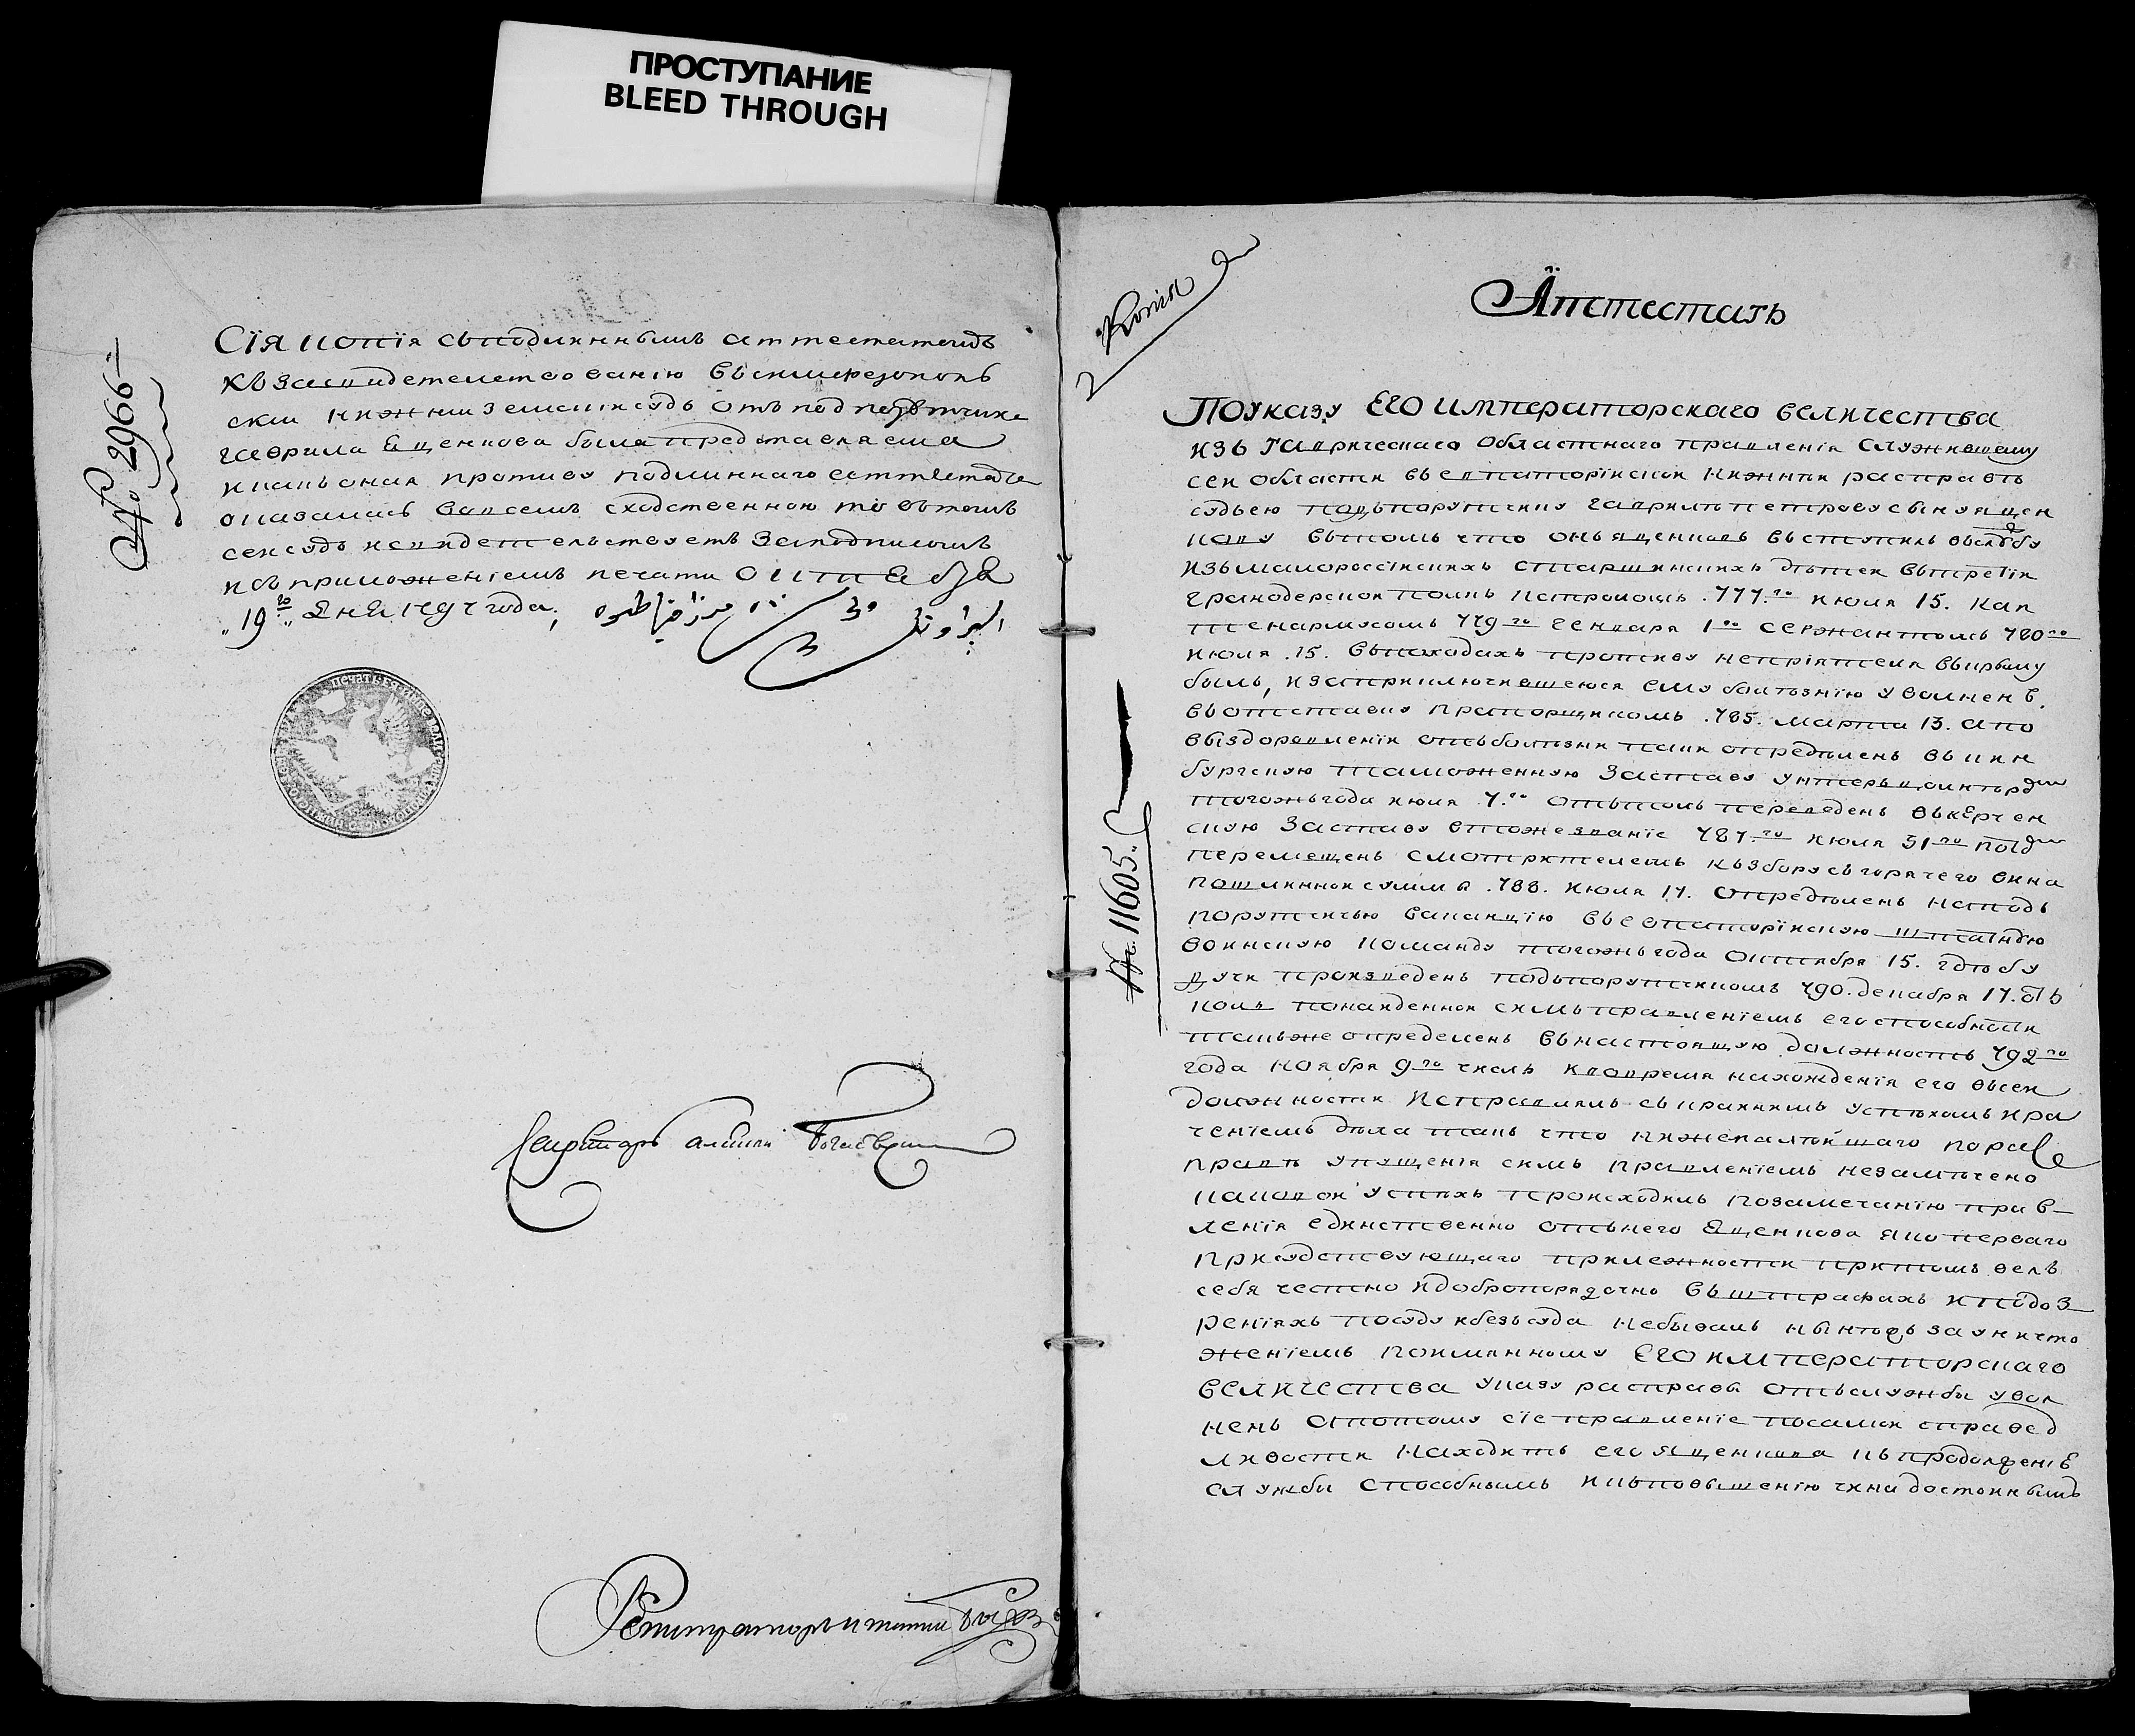 ПРОСТУПАНИЕ
BLEED THROUGH
№ 2966
Сія копія съ подлиннымъ аттестатомъ
къ засвидетелствованію въ симферопол
ски нижни земски судъ отъ подпорутчика
гаврила Яценкова была представляема
и какъ оная противу подлиннаго аттестата
оказалась во всемъ сходственною то въ томъ
сеи судъ и свидетельствуетъ за подписомъ
и съ приложеніемъ печати Октября
19го дня 1797 года
Секретарь
Регистраторъ
Копія
№ 11605.
Аттестатъ
По указу ЕГО императорскаго величества
изъ таврическаго областнаго правленія служившему
сеи области въ евпаторіискои нижнеи расправѣ
судьею подъпорутчику гаврилѣ петрову сыну яцен
кову въ томъ что онъ яценковъ вступилъ въ службу
изъ малороссіискихъ старшинскихъ дѣтеи въ третіи
гранодерскои полкъ 777.го июля 15. кап
тенармусомъ 779го генваря 1го сержантомъ 780го
июля .15. въ походахъ противу непріятеля въ крыму
былъ, и за приключившеюся ему болѣзнію уволненъ
въ отставку прапорщикомъ .785. марта 13. а по
выздоровленіи отъ болѣзни паки опредѣленъ въ кин
бургскую таможенную заставу унтеръ цоинтордм
тогожъ года июля 7.го отъ толь переведенъ въ керчен
скую заставу в тоже званіе 787.го июля 31го
перемещенъ смотрителемъ къ збору съ горячего вина
пошлиннои суммы .788. июля 17. опредѣленъ на подъ
порутчичью ваканцію въ евпаторіискую штатную
воинскую команду тогожъ года октября 15. гдѣ бу
дучи произведенъ подъпорутчикомъ 790. декабря 17. отъ
коль по наиденнои симъ правленіемъ его способности
такъ же определенъ въ настоящую должность 792го
года ноября 9го числъ и во время нахожденія его въ сеи
должности исправлялъ съ краинимъ успѣхомъ и ра
ченіемъ дѣла такъ что ни же малѣишаго по рас
правѣ упущенія симъ правленіемъ незамѣчено
каковои успѣхъ происходилъ по замечанію прав
ленія единственно отъ него Яценкова яко перваго
присудствующаго прилежности при томъ велъ
себя честно и добропорядочно въ штрафахъ и подоз
реніяхъ по суду и безъ суда небывалъ нынѣ же за уничто
женіемъ по имянному ЕГО императорскаго
величества указу расправы отъ службы увол
ненъ а потому сіе правленіе по самои справед
ливости находитъ его яценкова къ продолженію
службы способнымъ и къ повышенію чина достоинымъ